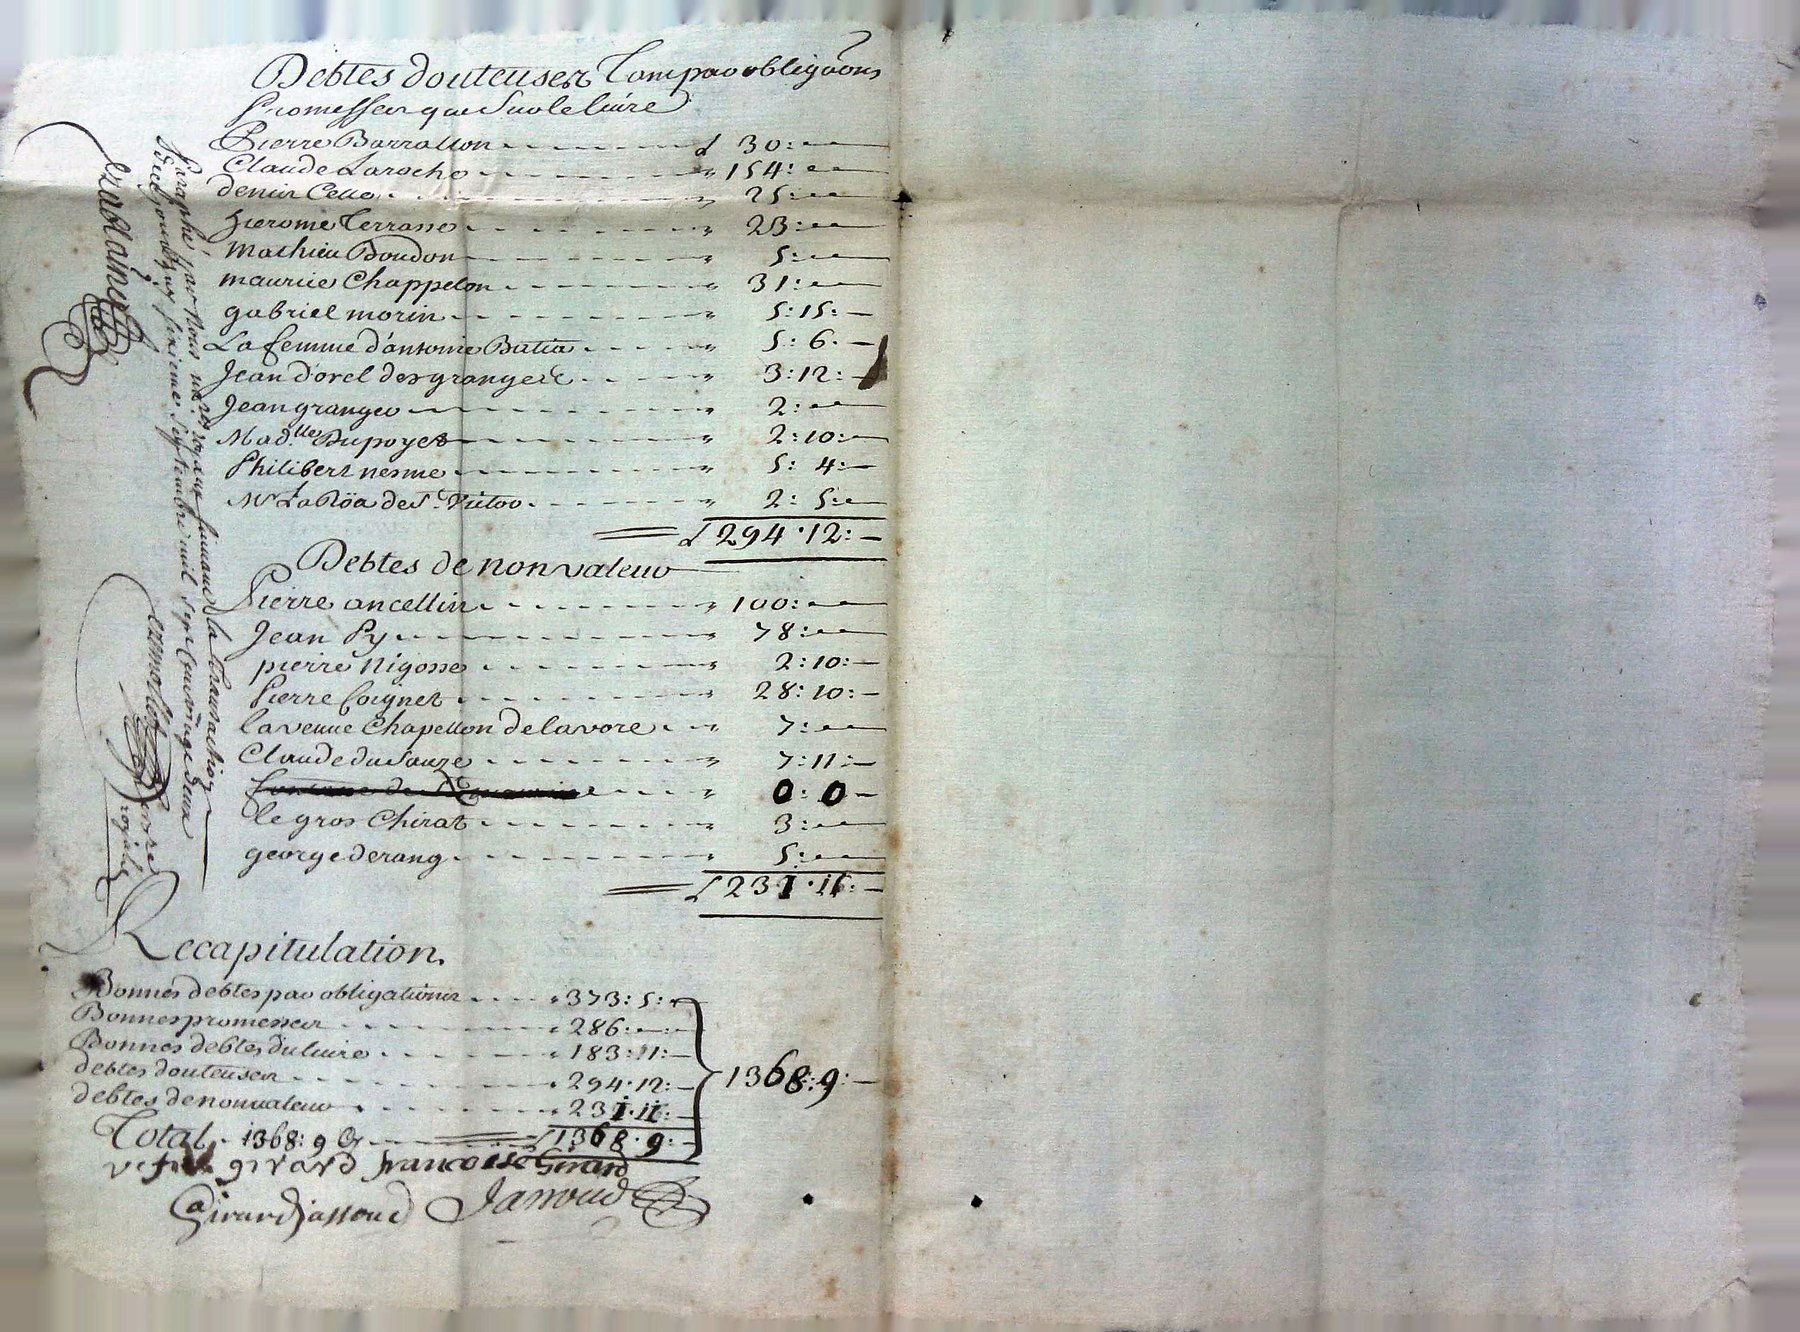 Debtes douteuses tant par obligaôns
Promesses que sur le livre
Pierre Barrallon £ 30:
Claude Laroche 154:
denis Celle 25:
Jierome Terrasse 23:
Mathieu Boudon 5:
maurice Chappelon 31:
gabriel morin 5:15:
La femme d'antoine 5:6:
Jean d'orel des granges 3:12:
Jean grange 2:
Mad.lle Dupoyet 2:10:
Philibert nesme 5:4:
Mr La Röa de St. Victor 2:5:
£ 294.12:
Debtes de non valeur
Pierre ancellin 100:
Jean Py 78:
pierre nigosse 2:10:
Pierre Coignet 28:10:
la veuve Chapellon de lavore 7:
Claude du Sauze 7:11:
0:0
le gros Chirat 3:
george derang 5:
£ 231.11:
Recapitulation.
Bonnes debtes par obligations 373:5:
Bonnes promesses 286:
Bonnes debtes du livre 183:11:
debtes douteuses 294.12:
debtes de non valeur 231.11:
1368:9:
Total. 1368:9 £ 1368.9:
girard francoise Girard
Girard Jassoud Jassoud
Paraphé par Nous nres royaux suivant la transaction
de ce jourd'huy sixieme septembre mil sept cent vingt deux
nore royal